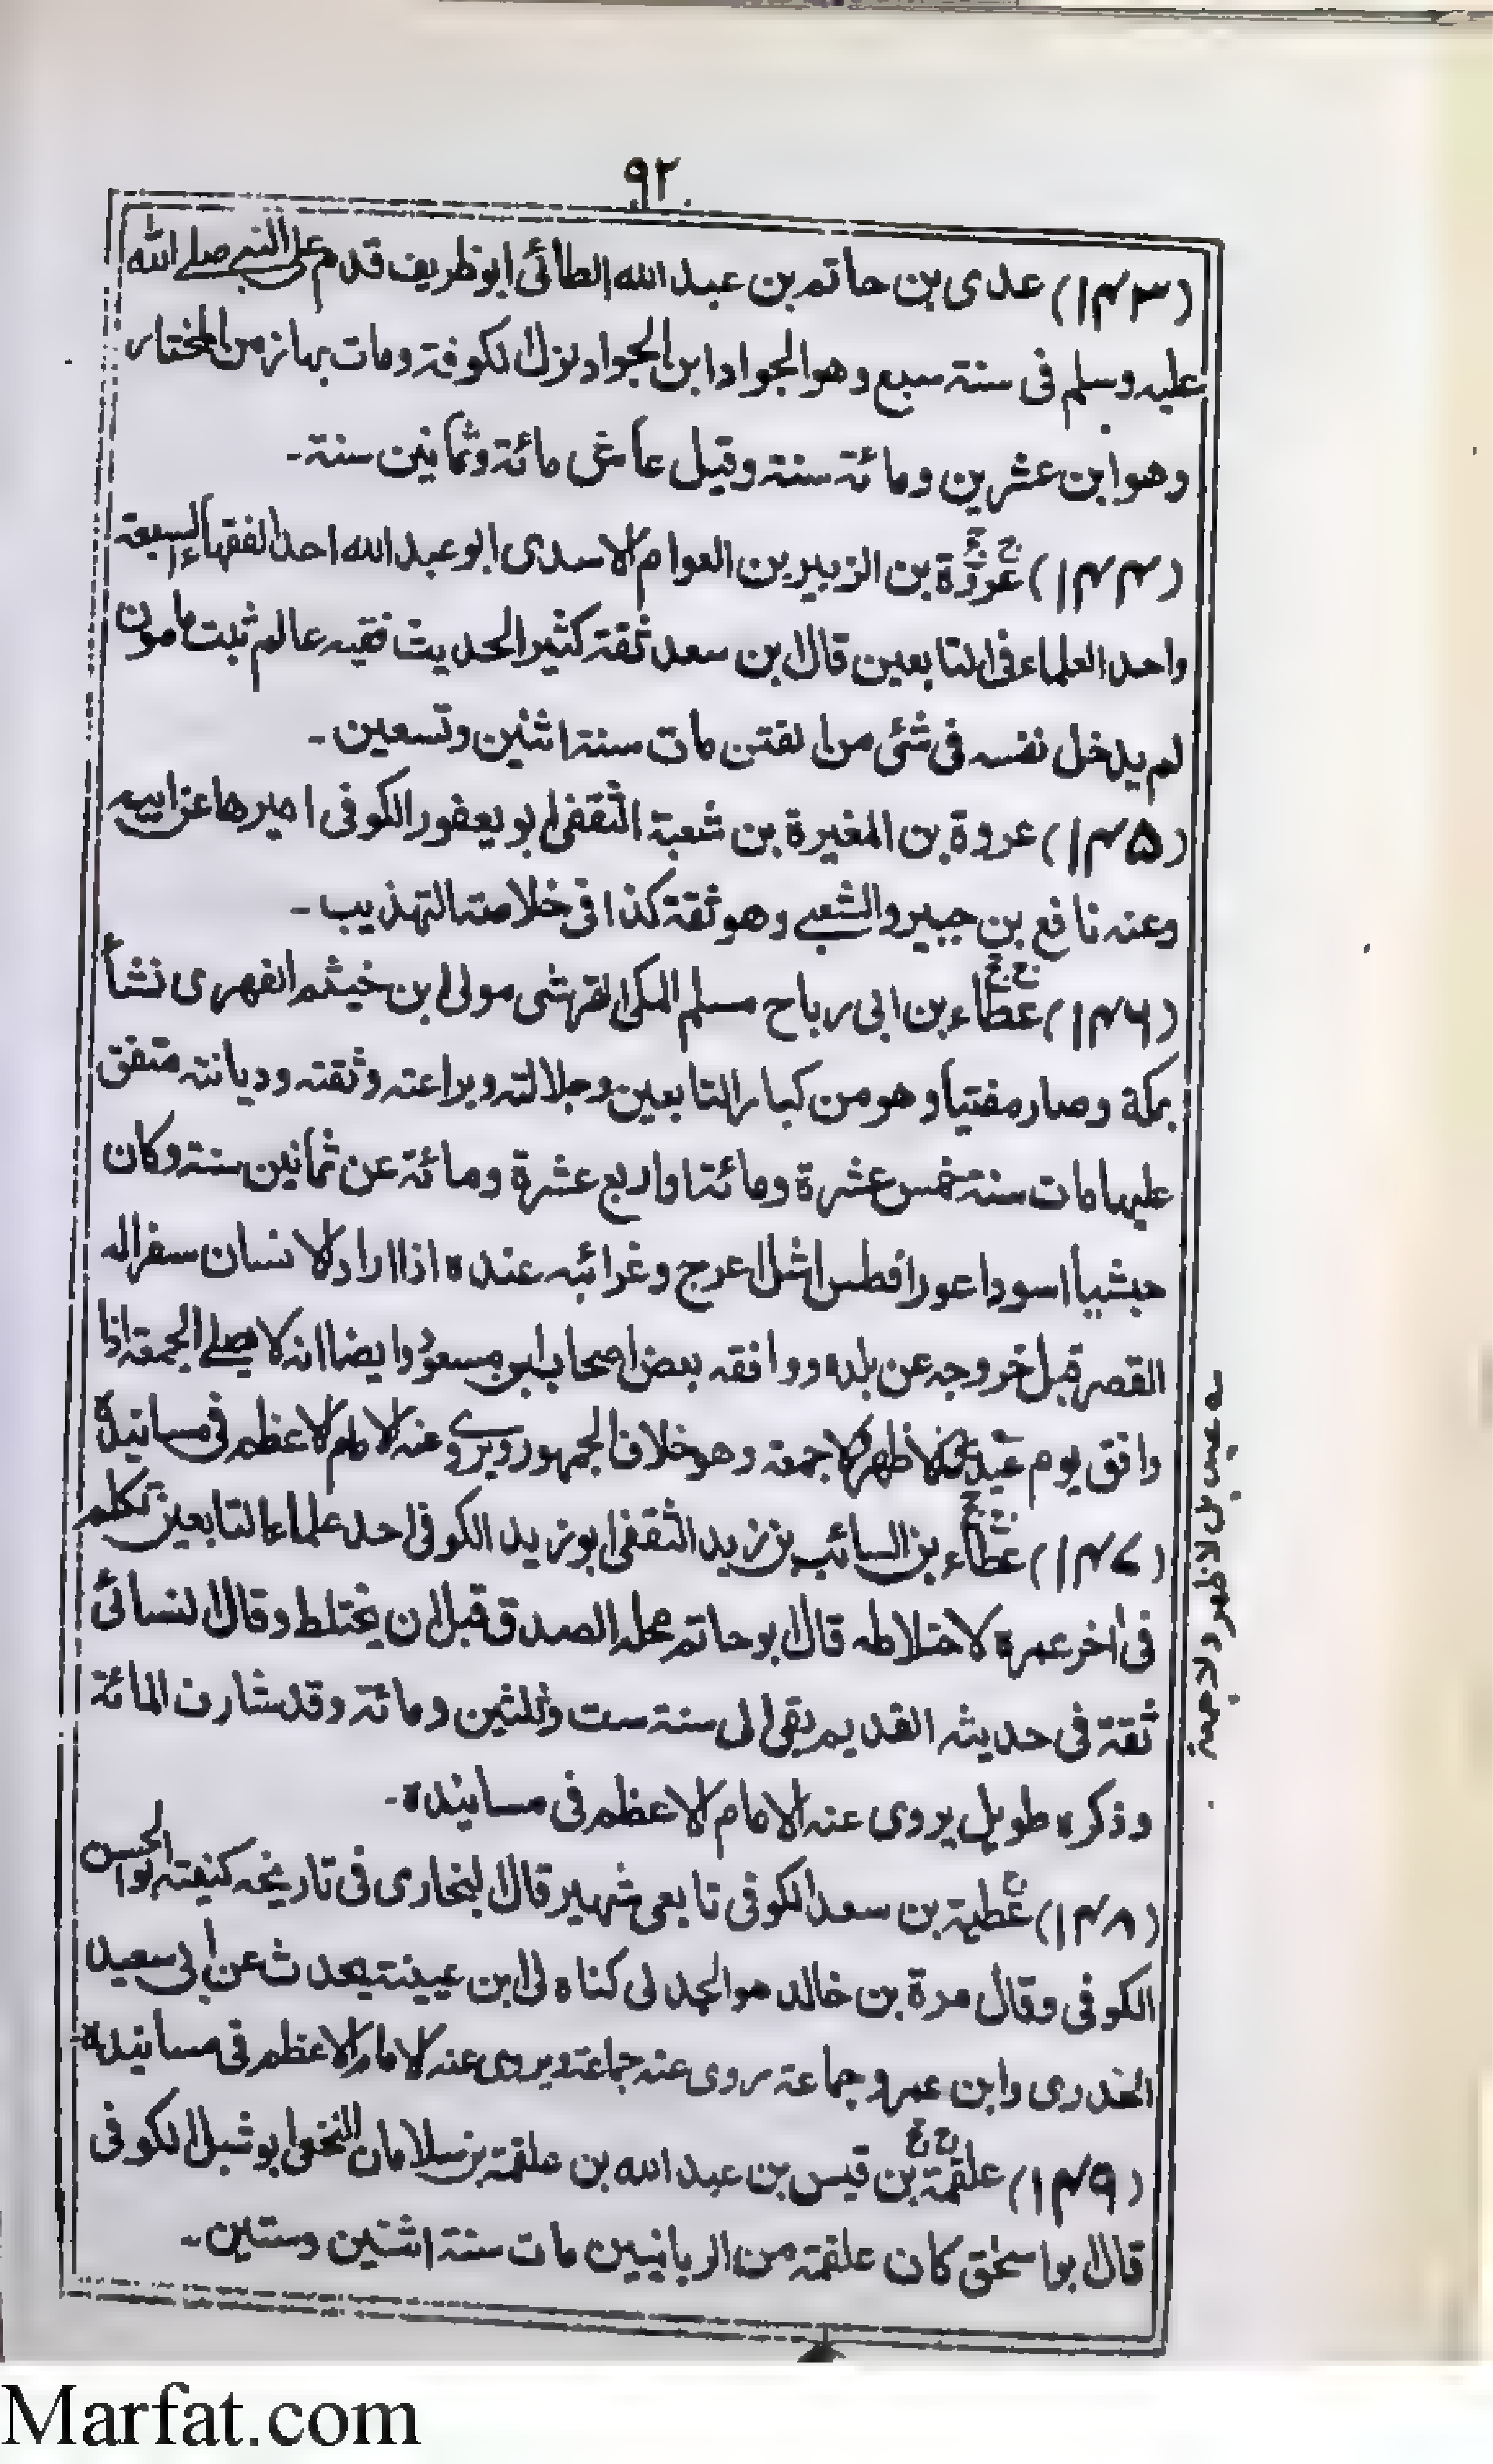 ٩٢
(١٤٣) عدى بن حاتم بن عبد الله الطائى ابو ظريف قدم على النبى صلے الله
عليه وسلم فى سنة سبع وهو الجواد ابن الجواد نزل الكوفة ومات بها زمن المختار
وهو ابن عشرين ومائة سنة وقيل عاش مائة وثمانين سنة۔
(١٤٤) عروة بن الزبير بن العوام الاسدى ابو عبد الله احد الفقهاء السبعة
واحد العلماء فى التابعين قال ابن سعد ثقة كثير الحديث فقيه عالم ثبت مامون
لم يدخل نفسه فى شئ من الفتن مات سنة اثنين وتسعين۔
(١٤٥) عروة بن المغيرة بن شعبة الثقفى ابو يعفور الكوفى اميرها عن ابيه
وعنه نافع بن جبير والشعبے وهو ثقة كذا فى خلاصة التهذيب۔
(١٤٦) عطاء بن ابى رباح مسلم المكى القرشى مولى ابن خيثم الفهرى نشأ
بمكة وصار مفتياً وهو من كبار التابعين وجلالته وبراعته وثقته وديانته متفق
عليها مات سنة خمس عشرة ومائة او اربع عشرة ومائة عن ثمانين سنة وكان
حبشياً اسود اعور افطس اشل اعرج وغرائبه عنده اذا اراد الانسان سفرا له
القصر قبل خروجه عن بلده ووافقه بعض اصحاب ابن مسعود وايضا انه لا يصلے الجمعة اذا
وافق يوم عيد لا ظهر لا جمعة وهو خلاف الجمهور ويروے عنه الامام الاعظم فى مسانيده
(١٤٧) عطاء بن السائب بن زيد الثقفى ابو زيد الكوفى احد علماء التابعين تكلم
فى اخر عمره لاختلاطه قال ابو حاتم محله الصدق قبل ان يختلط وقال النسائى
ثقة فى حديثه القديم بقى الى سنة ست وثلثين ومائة وقد شارف المائة
وذكره طويل يروى عنه الامام الاعظم فى مسانيده۔
(١٤٨) عطية بن سعد الكوفى تابعى شهير قال البخارى فى تاريخه كنيته ابو الحسن
الكوفى وقال مرة بن خالد هو الجدلى كناه لى ابن عيينة يحدث عن ابى سعيد
الخدرى وابن عمر وجماعة روى عنه جماعة ويروى عنه الامام الاعظم فى مسانيده
(١٤٩) علقمة بن قيس بن عبد الله بن علقمة بن سلامان النخعى ابو شبل الكوفى
قال ابو اسحٰق كان علقمة من الربانيين مات سنة اثنين وستين۔
Marfat.com